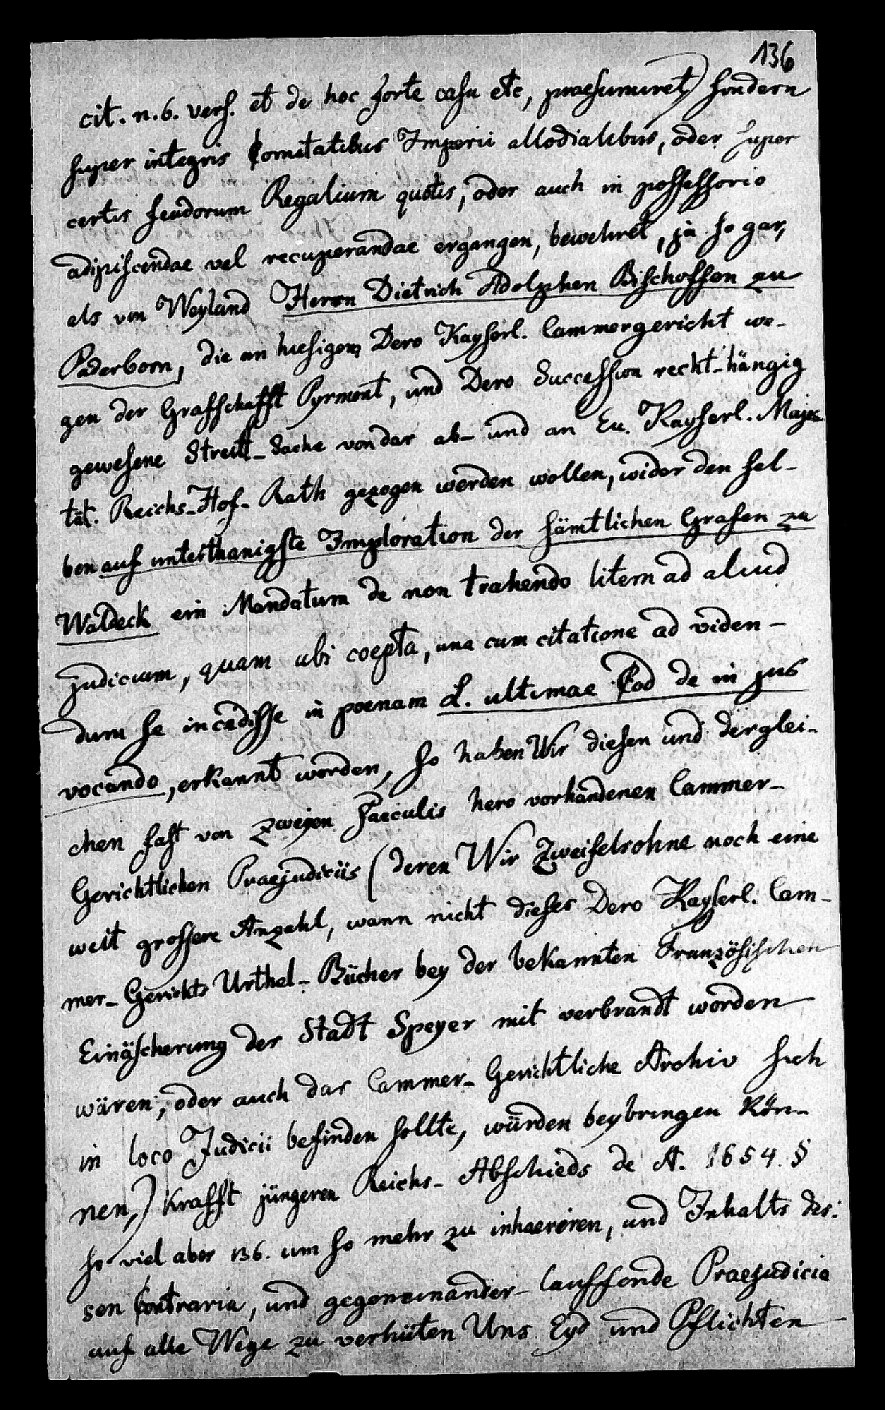 136
cit. n. 6. vers. et de hoc forte casu etc, praesumiret) sondern
super integris Comitatibus Imperii allodialibus, oder super
certis feudorum Regalium quotis, oder auch in possessorio
adipiscendae vel recuperandae ergangen, bewehret, ja so gar,
als von Weyland Herrn Dietrich Adolphen Bischoffen zu
Paderborn, die an hiesigem Dero Kayserl. Cammergericht we-
gen der Graffschafft Pyrmont, und Dero Succession reckt-hängig
gewesene Streitt-Sache von dar ab- und an Eu. Kayserl. Majes
tät. Reichs-Hof-Rath gezogen werden wollen, wider den sel-
ben auf unterthanigste Imploration der sämtlichen Grafen zu
Waldeck ein Mandatum de non trahendo litem ad aliud
judicium, quam ubi coepta, una cum citatione ad viden-
dum se incidisse in poenam L. ultimae Cod de in jus
vocando, erkannt worden, so haben Wir diesen und derglei-
chen fast von zweyen Saeculis hero vorhandenen Cammer-
Gerichtlichen Praejudiciis (deren Wir Zweifelsohne noch eine
weit grossere Anzahl, wann nicht dieses Dero Kayserl. Cam-
mer-Gerichts Urthel-Bücher bey der bekannten Französischen
Einäscherung der Stadt Speyer mit verbrandt worden
wären, oder auch das Cammer-Gerichtliche Archiv sich
in loco Judicii befinden sollte, würden beybringen kön-
nen,) Krafft jüngeren Reichs-Abschieds de A. 1654. §
so viel aber 136. um so mehr zu inhaeriren, und Inhalts des:
sen Contraria, und gegeneinander-lauffende Praejudicia
auf alle Wege zu verhüten Uns Eyd und Pflichten